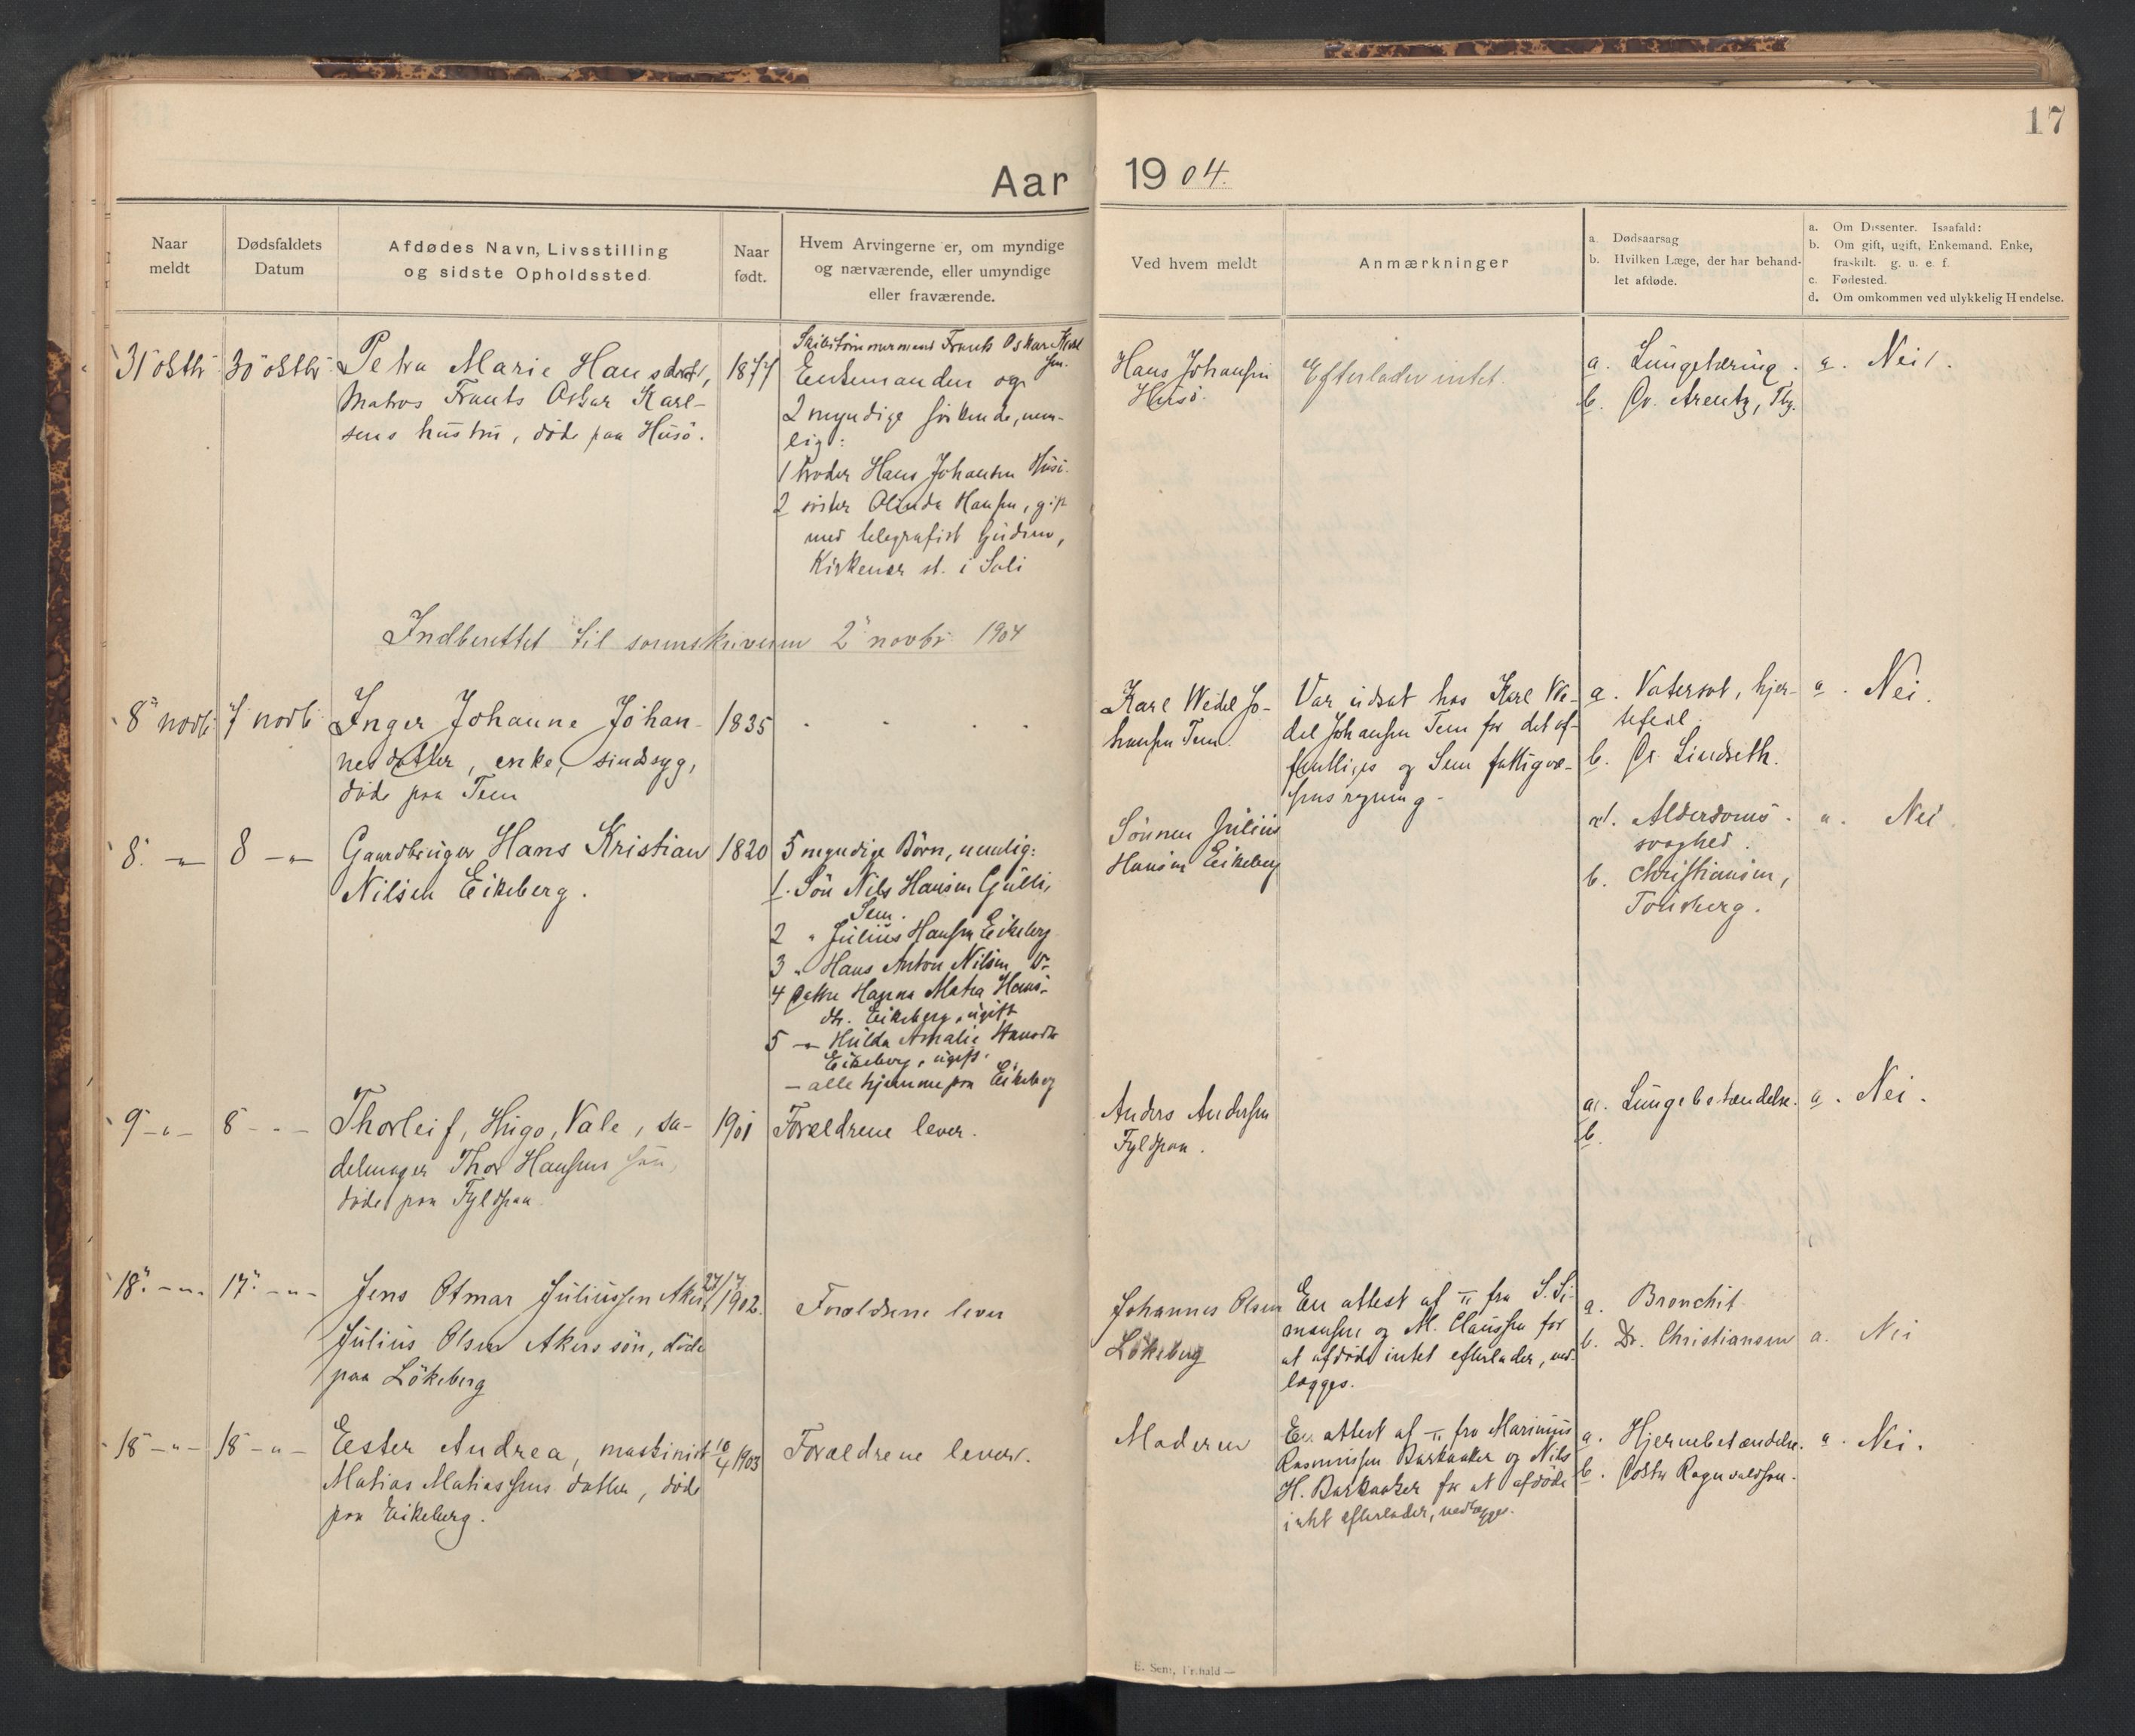 17
Aar 1904.
Naar meldt
Dødsfaldets Datum
Afdødes Navn, Livsstilling og sidste Opholdssted.
Naar født.
Hvem Arvingerne er, om myndige og nærværende, eller umyndige eller fraværende.
Ved hvem meldt
Anmærkninger
a. Dødsaarsag
b. Hvilken Læge, der har behandlet afdøde.
a. Om Dissenter. Isaafald:
b. Om gift, ugift, Enkemand, Enke, fraskilt. g. u. e. f.
c. Fødested.
d. Om omkommen ved ulykkelig Hændelse.
31 oktbr
30 oktbr
Petra Marie Hansdatr,
Matros Frants Oskar Karl-
sens hustru, døde paa Husö.
1877
Skibstömmermand Frants Oskar Karl
sen.
Enkemanden og
2 myndige söskende, nem-
lig:
1 broder Hans Johansen Husö.
2 söster Olinda Hansen, gift
med telegrafist
Kirkenær st. i Solör
Hans Johansen
Husö.
Efterlader intet.
a. Lungetæring.
b. Dr. Arentz, Tbg.
a. Nei.
Indberettet til sorenskriveren 2 novbr 1904
8 novbr
7 novbr
Inger Johanne Johan-
nesdatter, enke, sindssyg,
döde paa Tem
1835
Karl Wedel Jo-
hansen Tem.
Var udsat hos Karl We-
del Johansen Tem for det of-
fentliges og Sem fattigvæ-
sens regning.
a. Vatersot, hjer-
tefeil.
b. Dr. Lindseth.
a. Nei.
8. -"-
8 -"-
Gaardbruger Hans Kristian
Nilsen Eikeberg.
1820
5 myndige Börn, nemlig:
1. Sön Nils Hansen Gulli,
Sem.
2 " Julius Hansen Eikeberg
3 " Hans Anton Nilsen
4 Datter Hanna Matea Hans-
dtr. Eikeberg, ugift
5 -"- Hulda Amalie Hansdtr
Eikeberg, ugift.
- alle hjemme paa Eikeberg
Sönnen Julius
Hansen Eikeberg
a. Alderdoms-
svaghed.
b. Christiansen,
Tönsberg.
a. Nei
9 -"-
8 -"-
Thorleif, Hugo, Vale, sa-
delmager Thor Hansens sön,
döde paa Fyldpaa
1901
Forældrene lever.
Anders Andersen
Fyldpaa.
a. Lungebetændelse.
b.
a. Nei.
18. -"-
17. -"-
Jens Otmar Juliussen Aker,
Julius Olsen Akers sön, döde
paa Lökeberg
27/7 1902.
Forældrene lever
Johannes Olsen
Lökeberg
En attest af -"- fra S. Si-
monsen og M. Claussen for
at afdöde intet efterlader, ved-
lægges.
a. Bronchit
b. Dr. Christiansen
a. Nei
18 -"-
18 -"-
Ester Andrea, maskinist
Matias Matiassens datter, döde
paa Eikeberg.
10/4 1903
Forældrene lever.
Moderen
En attest af -"- fra Marinius
Rasmussen Barkaaker og Nils
H. Barkaaker for at afdöde
intet efterlader, vedlægges.
a. Hjernebetændelse.
b. Doktor Rognvaldson.
a. Nei.
E. Sem, Fr.hald —